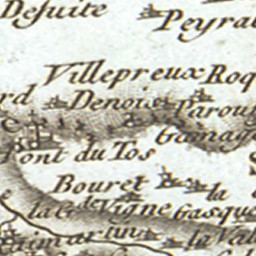 Desuite
Peyra
Villepreux Roq
rd Denois Parou
Gamage
Pont du Tos
Bouret la
de Vigne Gasque
la Val